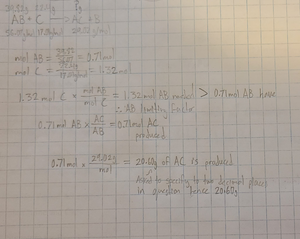 AB + C → AC + B
mol AB = = 0.71mol
mol C = = 1.32mol
1.32 mol C × mol AB / mol C = 1.32 mol AB needed > 0.71 mol AB have
∴ AB limiting factor
0.71 mol AB × AC / AB = 0.71 mol AC
produced
0.71 mol × 29.02g / mol = 20.60g of AC is produced
to specify to two decimal places
in question hence 20.60g